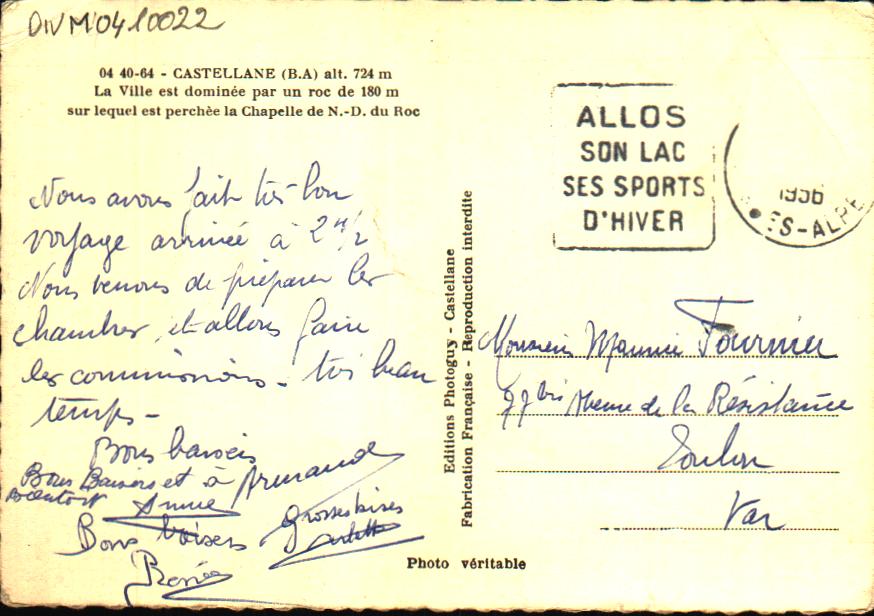 DIV M'0410022
04 40-64 - CASTELLANE (B.A) alt. 724 m
La Ville est dominée par un roc de 180 m
sur lequel est perchèe la Chapelle de N.-D. du Roc
ALLOS
SON LAC
SES SPORTS
D'HIVER
1956
ES-ALPE
Nous avons fait très bon
voyage arrivée à 2 h 1/2
Nous venons de préparer les
chambres, et allons faire
les commissions - très beau
temps -
Bons baisers
Armande
Bons Baisers et à
Bientôt Annie
Grosses bises
Arlette
Bons baisers
Renée
Editions Photoguy - Castellane
Fabrication Française - Reproduction interdite
Monsieur Maurice Fournier
77 bis Avenue de la Résistance
Toulon
Var
Photo véritable